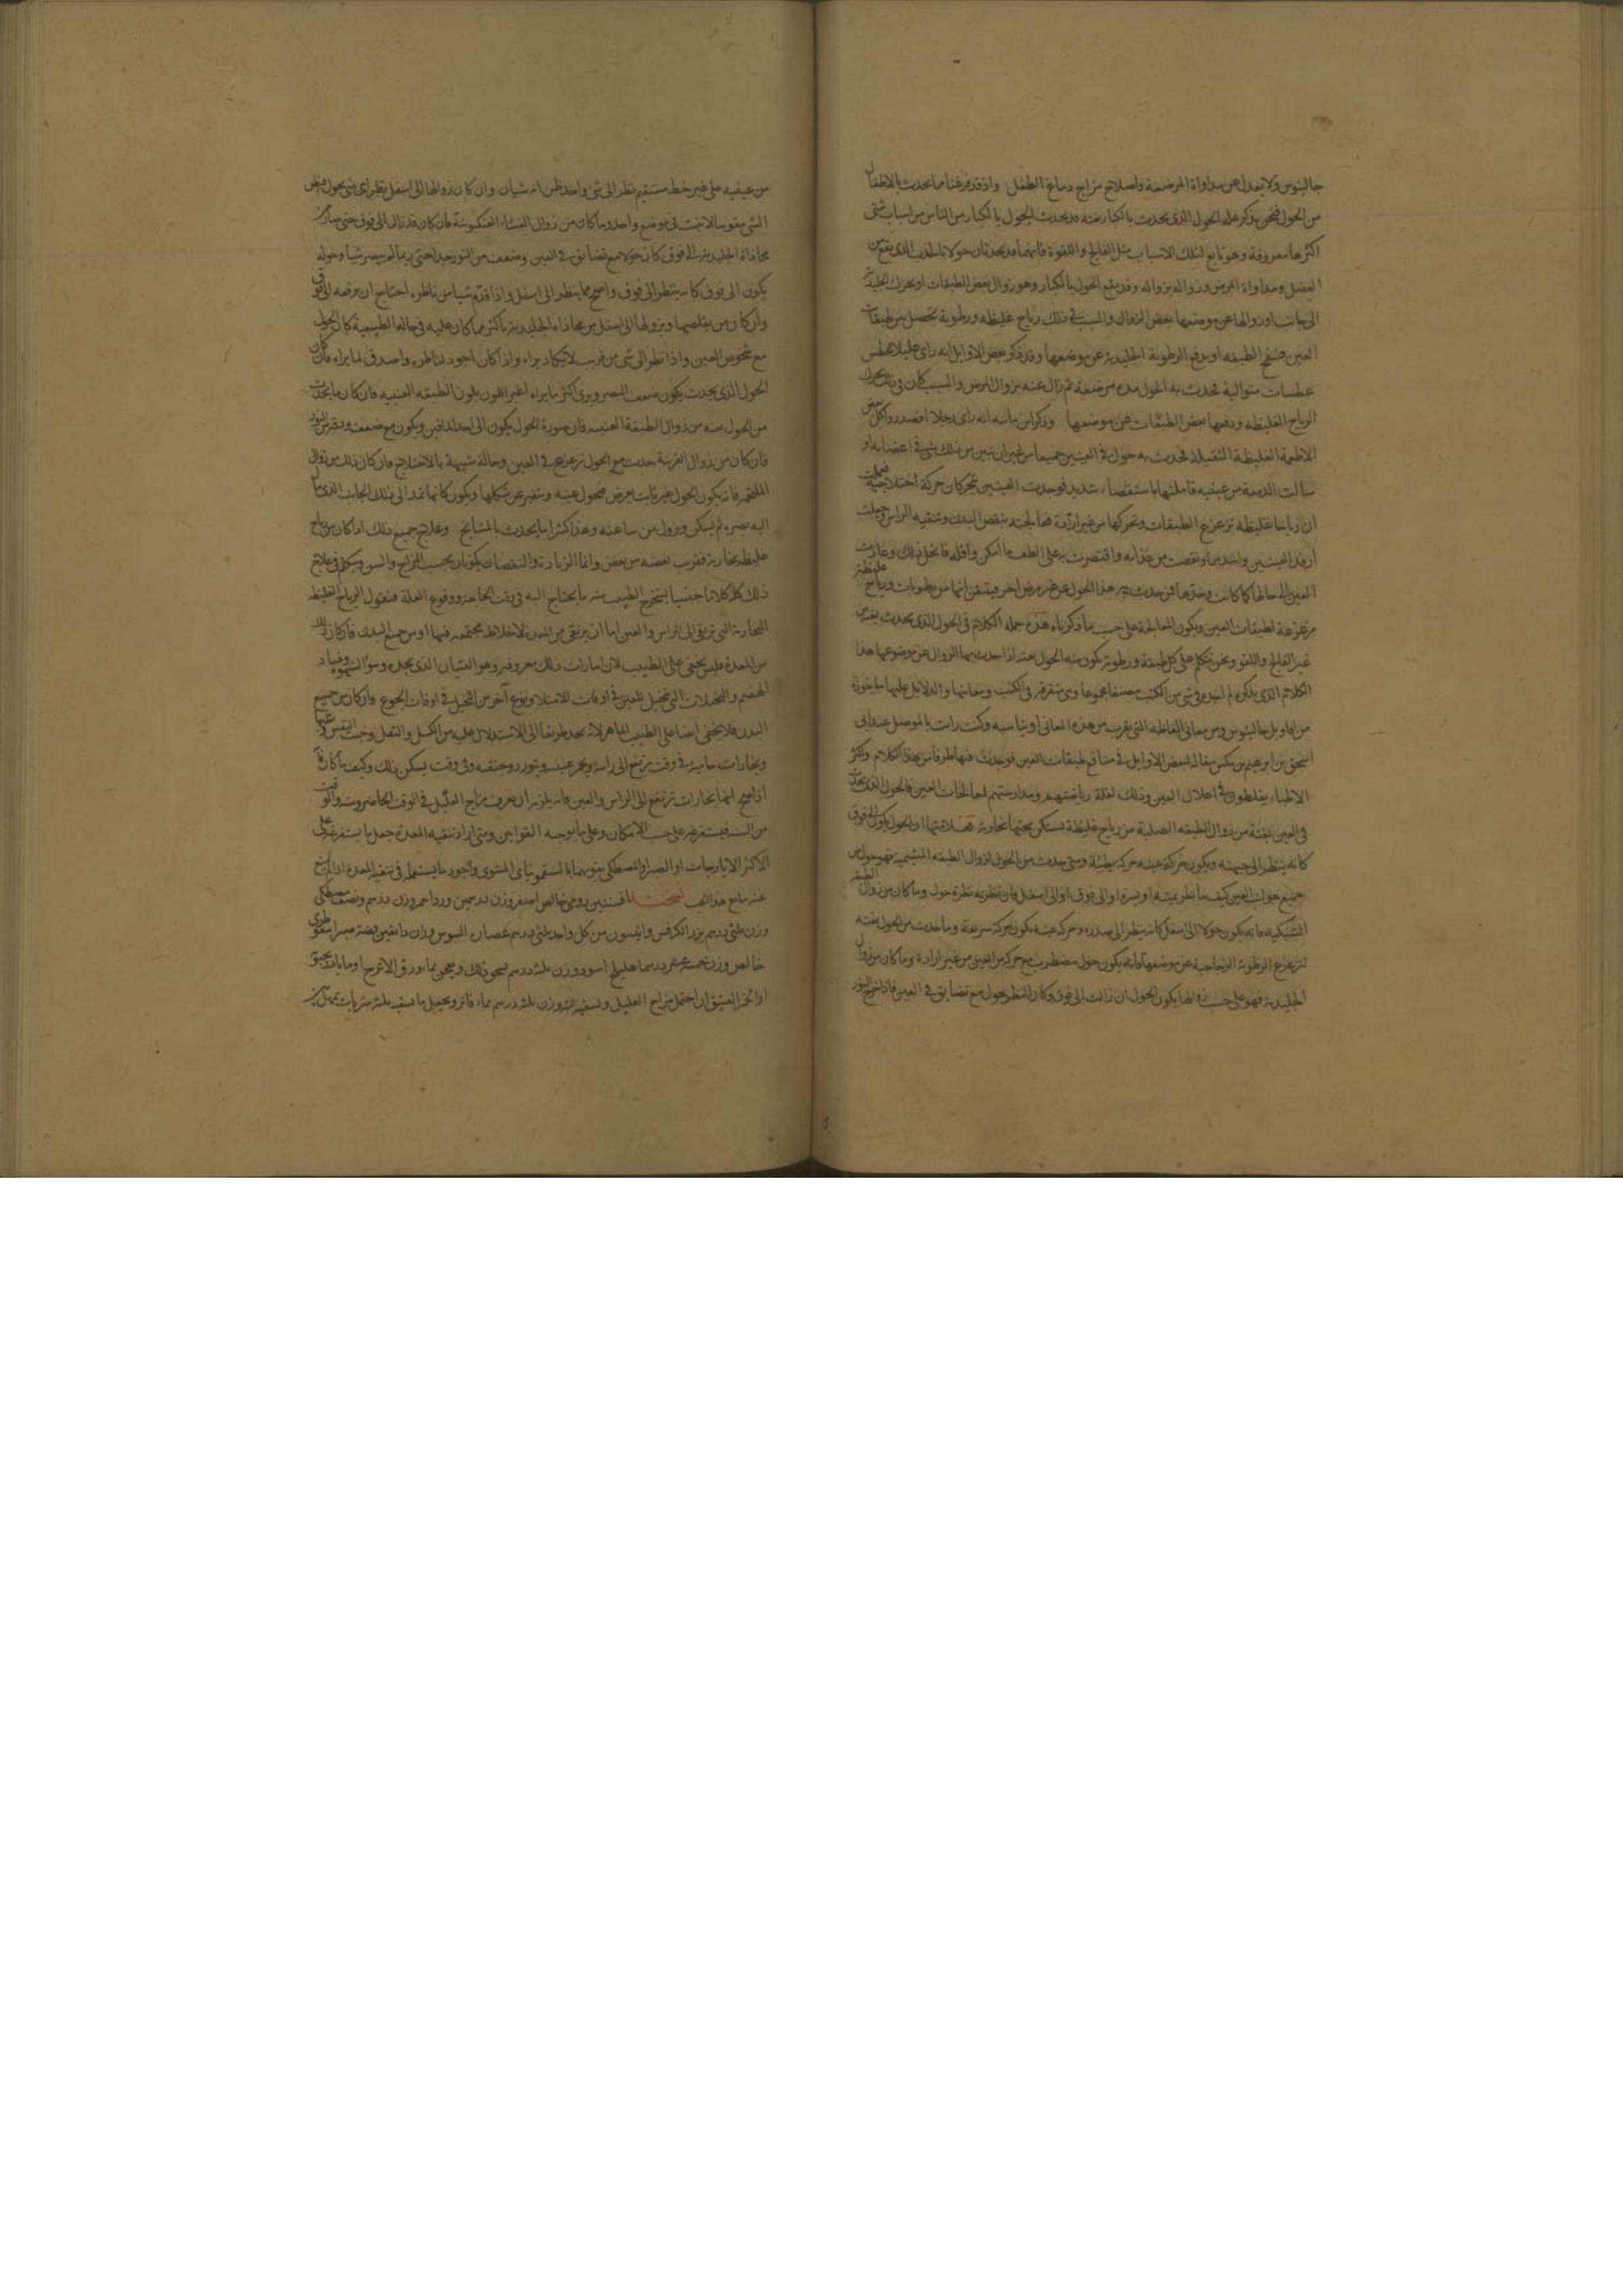 جالينوس ولا تعدل عن مداواة المرضعة واصلاح مزاج دماغ الطفل واذ قد فرغنا مما يحدث بالاطفال
من الحول فنحن نذكر علة الحول الذى يحدث بالكبار بغتة قد يحدث الحول بالكبار من الناس من اسباب شتى
اكثرها معروفة وهو تابع لتلك الاسباب مثل الفالج واللقوة فانهما قد يحدثان حولا بالجذب الذى يقع من
العضل ومداواة المرض وزواله بزواله وقد يقع الحول بالكبار وهو زوال بعض الطبقات او تحرك الجليدية
الى جانب او زوالها عن موضعها بعض الزوال والسبب فى ذلك رياح غليظه ورطوبة تحصل بين طبقات
العين فتنفخ الطبقه او يدفع الرطوبة الجليدية عن موضعها وقد ذكر بعض الاوايل انه راى عليلا عطس
عطسات متوالية فحدث به الحول مدة مرضعة ثم زال عنه بزوال المرض والسبب كان فى ذلك تحرك
الرياح الغليظة ودفعها بعض الطبقات عن موضعها وذكر ابن ماسه انه راى رجلا افصد واكل بعض
الاطعمة الغليظة الثقيلة فحدث به حول فى العينين جميعا من غير ان تبين من ذلك شى فى اعضايه او
سالت الدمعة من عينيه فاملتها باستقصاء شديد فوجدت العينين تتحركان حركة اختلاجية فعلمت
ان رياحا غليظة تزعزع الطبقات وتحركها من غير ارادة فعالجته بنقص البدن وتنقيه الراس وجعلت
ارفد العينين واشدهما ونقصت من غذايه واقتصرت به على الطف ما امكن واقله فانحل ذلك وعادت
العين الى حالها كما كانت وحدها فمن حدث به هذا الحول عن غير مرض اخر فيتيقن انها من رطوبات ورياح غليظة
مزعزعة لطبقات العين ويكون المعالجة على حسب ما ذكرناه هذه جملة الكلام فى الحول الذى يحدث بغتة من
غير الفالج واللقوة ونحن نتكلم على كل طبقة ورطوبة يكون منه الحول بغتة اذا حدث بها الزوال عن موضوعها هذا
الكلام الذى نذكره لم اجده فى شى من الكتب مصنفا مجموعا وهى متفرقة فى الكتب ومعانيها والدلايل عليها ماخوذة
من اقاويل جالينوس ومن معانى الفاظه التى تقرب من هذه المعانى او يناسبه وكنت رايت بالموصل عند ابى
اسحق بن ابرهيم بن بكس مقالة لبعض الاوايل فى منافع طبقات العين فوجدت فيها طرفا من هذا الكلام واكثر
الاطباء يغلطون فى اعلال العين وذلك لقلة رياضتهم ومدارستهم لمعالجات العين فالحول الذى يحدث
فى العين بغتة من زوال الطبقه الصلبة من رياح غليظة تستكن تحتها بخارية فعلامتها ان الحول يكون الى فوق
كانه ينظر الى جبهته ويكون حركة عينه حركة بطيئة ومتى حدث من الحول لزوال الطبقه المشيمية فهو حول من
جميع جوانب العين كيف ما نظر يمنه او يسرة او الى فوق او الى اسفل فان نظره نظرة حول وما كان من زوال الطبقه
الشبكيه فانه يكون حولا الى اسفل كانه ينظر الى صدره وحركة عينه يكون حركة سريعة وما حدث من الحول بغته
لتزعزع الرطوبة الزجاجية عن موضعها فانه يكون حول مضطرب مع حركة من العين من غير ارادة وما كان من زوال
الجليدية فهو على حسب زوالها يكون الحول ان زالت الى فوق وكان النظر بحول مع تضايق فى العين فاذا خرج النور
من عينيه على غير خط مستقيم نظر الى شى واحد ظن انه شيان وان كان زوالها الى اسفل ينظر اى شى بحول ونظر
الشى مقوسا لا يثبت فى موضع واحد وما كان من زوال الغشاء العنكبوتية فان كان قد زال الى فوق حتى صار
محاذاة الجليدية الى فوق كان حولا مع تضايق فى العين وضعف من النور جدا حتى ربما لم يبصر شيا وحوله
يكون الى فوق كانه ينظر الى فوق واصح مما ينظر الى اسفل واذا قدم شيا من ناظره احتاج ان يرفعه الى فوق
وان كان من تقلصها ونزولها الى اسفل من محاذاة الجليدية باكثر مما كان عليه فى حاله الطبيعية كان الحول
مع شخوص العين واذا نظر الى شى من قريب لا يكاد يراه واذا كان اجود لناظره واصدق لما يراه فان كان
الحول الذى يحدث يكون ضعف البصر ويرى اكثر ما يراه اغبر اللون بلون الطبقه العنبيه فان كان ما يحدث
من الحول منه من زوال الطبقة العنبيه فان صورة الحول يكون الى احد الماقين ويكون مع ضعف وتفرق النور
فان كان من زوال القرنية حدث مع الحول تزعزع فى العين وحالة شبيهة بالاختلاج فان كان ذلك من زوال
الملتحمة فانه يكون الحول غير ثابت يعرض فتحول عينه وتتغير عن شكلها ويكون كانها تمد الى ذلك الجانب الذى مال
اليه بصره ثم يسكن ويزول من ساعته وهذا اكثر ما يحدث بالمشايخ وعلاج جميع ذلك اذا كان من رياح
غليظه بخارية فقريب بعضه من بعض وانما الزيادة والنقصان يكونان بحسب المزاج والسن وسنتكلم فى علاج
ذلك كله كلاما جنسيا يستخرج الطبيب منه ما يحتاج اليه فى وقت الحاجة ووقوع العلة فنقول الرياح الغليظه
البخارية التى ترتقى الى الراس والعين اما ان يرتقى من المعدة لاخلاط مجتمعه فيها او من جميع البدن فان كان ذلك
من المعدة فليس يخفى على الطبيب لان امارات ذلك معروفة وهو الغثيان الذى يجده وسوء الشهوة وفساد
الهضم والتخيلات التى تتخيل للعين فى اوقات الامتلا ونوع آخر من التخيل فى اوقات الجوع وان كان من جميع
البدن فلا يخفى ايضا على الطبيب الماهر لانه يجد طريقا الى الاستدلال عليه من الكسل والثقل وخبث النفس
وبخارات حامية فى وقت يرتفع الى راسه ويحمر عينيه ويتورد وجنتيه وفى وقت يسكن ذلك وكيف ما كان
اذا صح انها بخارات ترتفع الى الراس والعين فانه يلزم ان يعرف مزاج العليل فى الوقت الحاضر وسنه والوقت
من السنه فيستفرغه على حسب الامكان وعلى ما يوجبه القوانين ومتى اراد تنقيه المعدة جعل ما يستفرغه على
الاكثر الايارجات او الصبر والمصطكى يقويهما بالسقمونياى المشوى واجود ما يستعمله فى تنقية المعدة اذا لم يمنع
عنه مانع هذا الحب نسخته افسنتين رومى خالص اصفر وزن درهمين ورد احمر وزن درهم ونصف مصطكى
وزن ثلثى درهم بزر الكرفس وانيسون من كل واحد ثلثى درهم عصارة السوس وزن دانقين فضة صبر اسقوطرى
خالص وزن خمسة عشر درهما هليلج اسود وزن ثلثه درهم يسحق ذلك ويعجن بماء ورق الاترج او ماء
او الخمر العتيق ان احتمل مزاج العليل ويسقيه منه وزن ثلثه درهم بماء فاتر ويجعل ما يسقيه ثلثه شربات يمهل بين